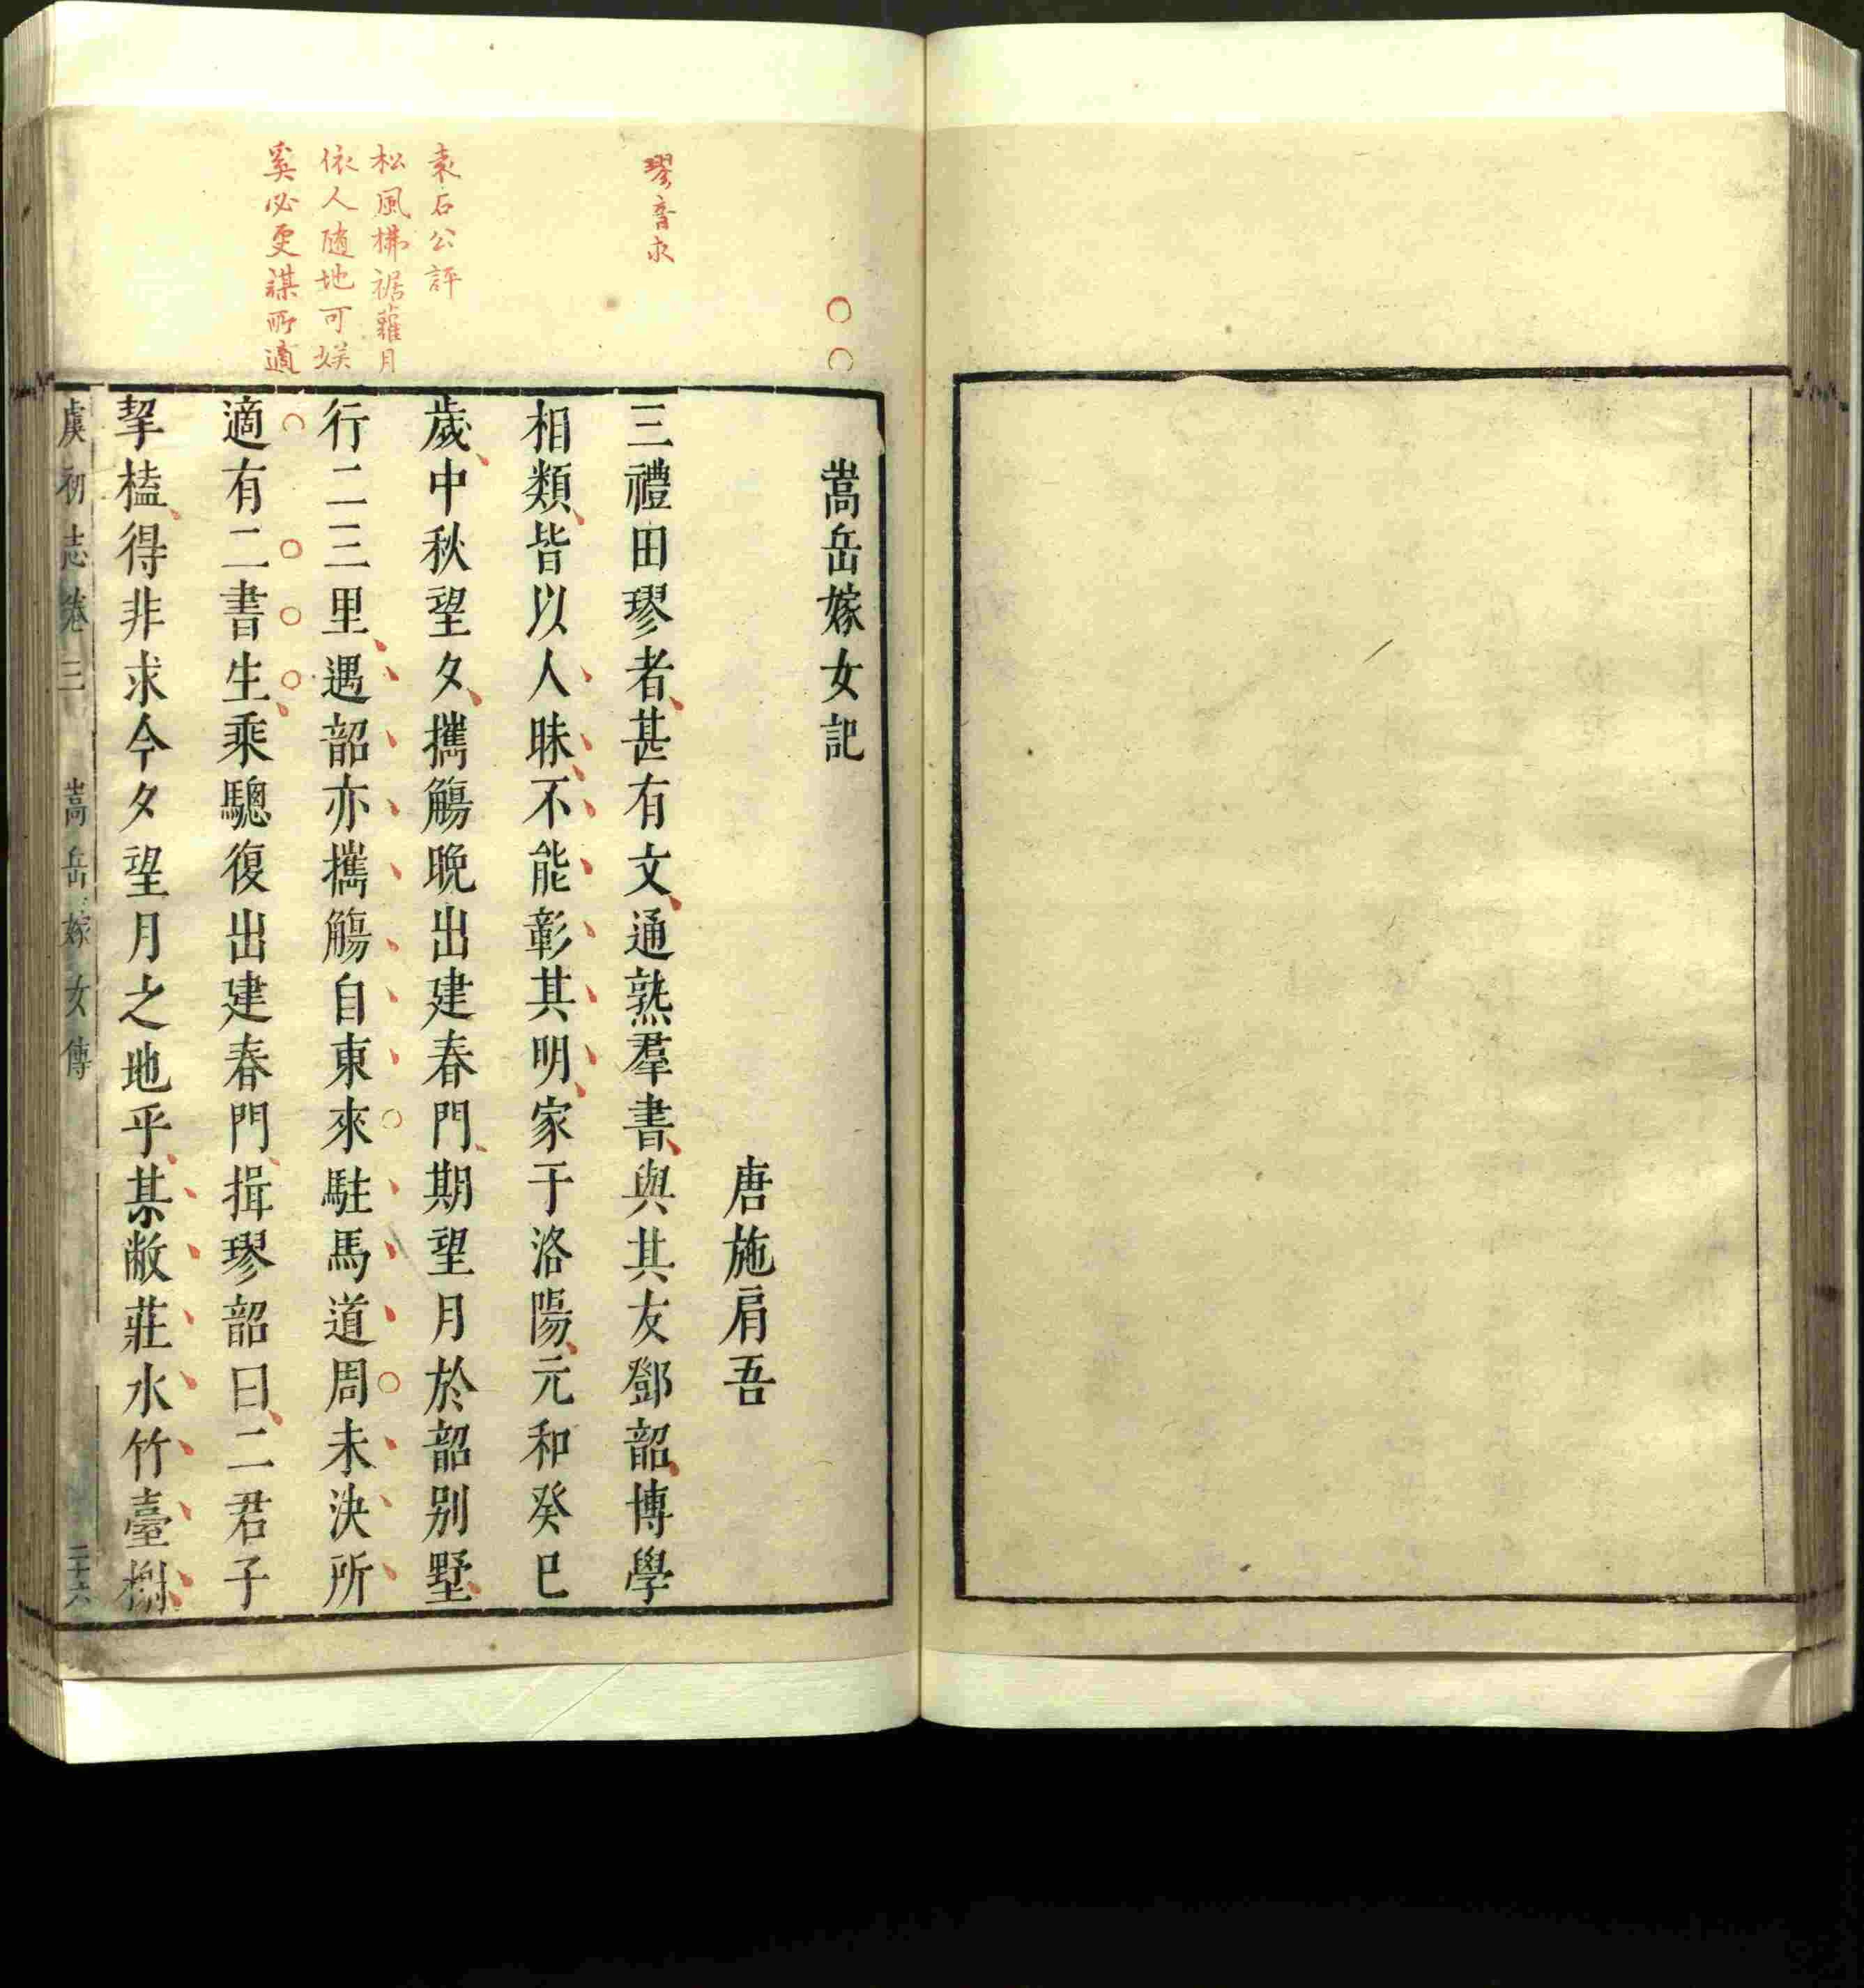 嵩岳嫁女記
唐施肩吾
三禮田璆者甚有文通熟羣書與其友鄧韶博學
相類皆以人昧不能彰其明家于洛陽元和癸巳
歲中秋望夕攜觴晚出建春門期望月於韶别墅
行二三里遇韶亦攜觴自東來駐馬道周未決所
適有二書生乘驄復出建春門揖璆韶曰二君子
挈榼得非求今夕望月之地乎某敝莊水竹臺榭
虞初志卷三 嵩岳嫁女傳 二十六
璆音求
袁石公評
松風拂裾蘿月
依人隨地可娛
奚必更謀所適